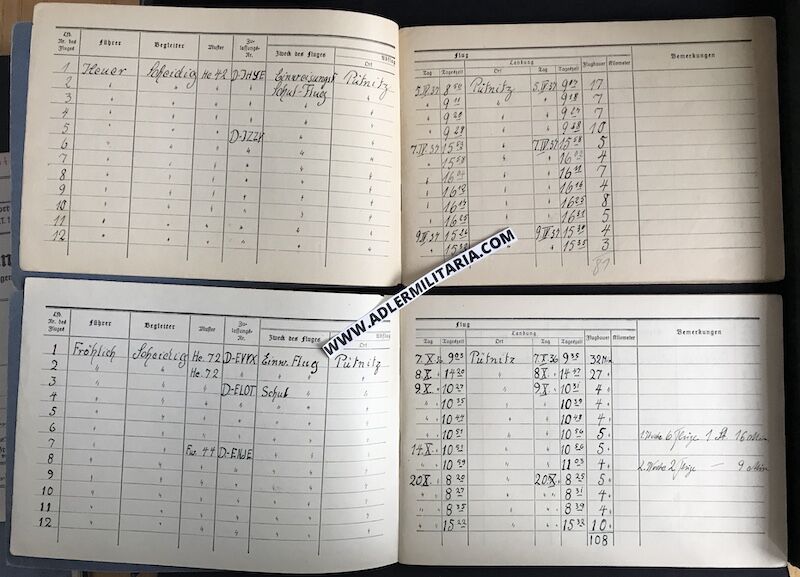 Lfd. Nr. des Fluges Führer Begleiter Muster Zulassungs-Nr. Zweck des Fluges Abflug Ort
1 Heuer Scheidig He 42 D-JHYE Einweisungs Pütnitz
2 " " " " Schul-Flug "
3 " " " " " "
4 " " " " "
5 " " " D-JZZK " "
6 " " " " " "
7 " " " " "
8 " " " " "
9 " " " " "
10 " " " " "
11 " " " " "
12 " " " " "
Flug
Landung
Tag Tageszeit Ort Tag Tageszeit Flugdauer Kilometer Bemerkungen
5.IV.37 8 50 Pütnitz 5.IV.37 9 07 17
" 9 11 " " 9 18 7
" " 9 27 7
" 9 28 " " 9 38 10
7.IV.37 15 53 " 7.IV.37 15 58 5
" 15 58 " " 16 02 4
" 16 04 " " 7
" " 16 16 4
" " 16 25 8
" " 16 31 5
9.IV.37 " 9.IV.37 15 30 4
" " 15 35 3
81
WWW.ADLERMILITARIA.COM
Lfd. Nr. des Fluges Führer Begleiter Muster Zulassungs-Nr. Zweck des Fluges Abflug Ort
1 Fröhlich Scheidig He. 72 D-EVYX Einw. Flug Pütnitz
2 " " He. 72 " " "
3 " " " D-ELOT Schul "
4 " " " " " "
5 " " " " "
6 " " " " "
7 " " Fw. 44 D-ENJE " "
8 " " " " "
9 " " " " "
10 " " " " "
11 " " " " "
12 " " " " "
Flug
Landung
Tag Tageszeit Ort Tag Tageszeit Flugdauer Kilometer Bemerkungen
7.X.36 9 03 Pütnitz 7.X.36 9 35 32 Min
8.X. " 14 20 " 8.X. " 14 47 27 "
9.X. " 10 27 " 9.X. " 10 31 4 "
" " 10 35 " " " 10 39 4 "
" " 10 44 " " " 10 48 4 "
" " 10 51 " " " 10 56 5 " 1. Woche 6 Flüge 1 St 16 Min
14.X. 10 51 " 10 56 5 "
" " 10 59 " " " 11 03 4 " 2. Woche 2 Flüge — 9 Min
20.X. " 8 20 " 20.X. " 8 25 5 "
" " 8 27 " " " 8 31 4 "
" " 8 35 " " " 8 39 4 "
" " 15 22 " " " 15 32 10 "
108